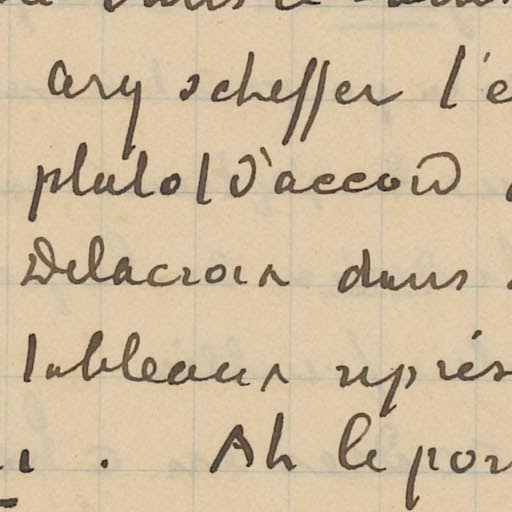 Ary Scheffer l'e
plutot d'accord
Delacroix dans
tableaux représ
. Ah le por